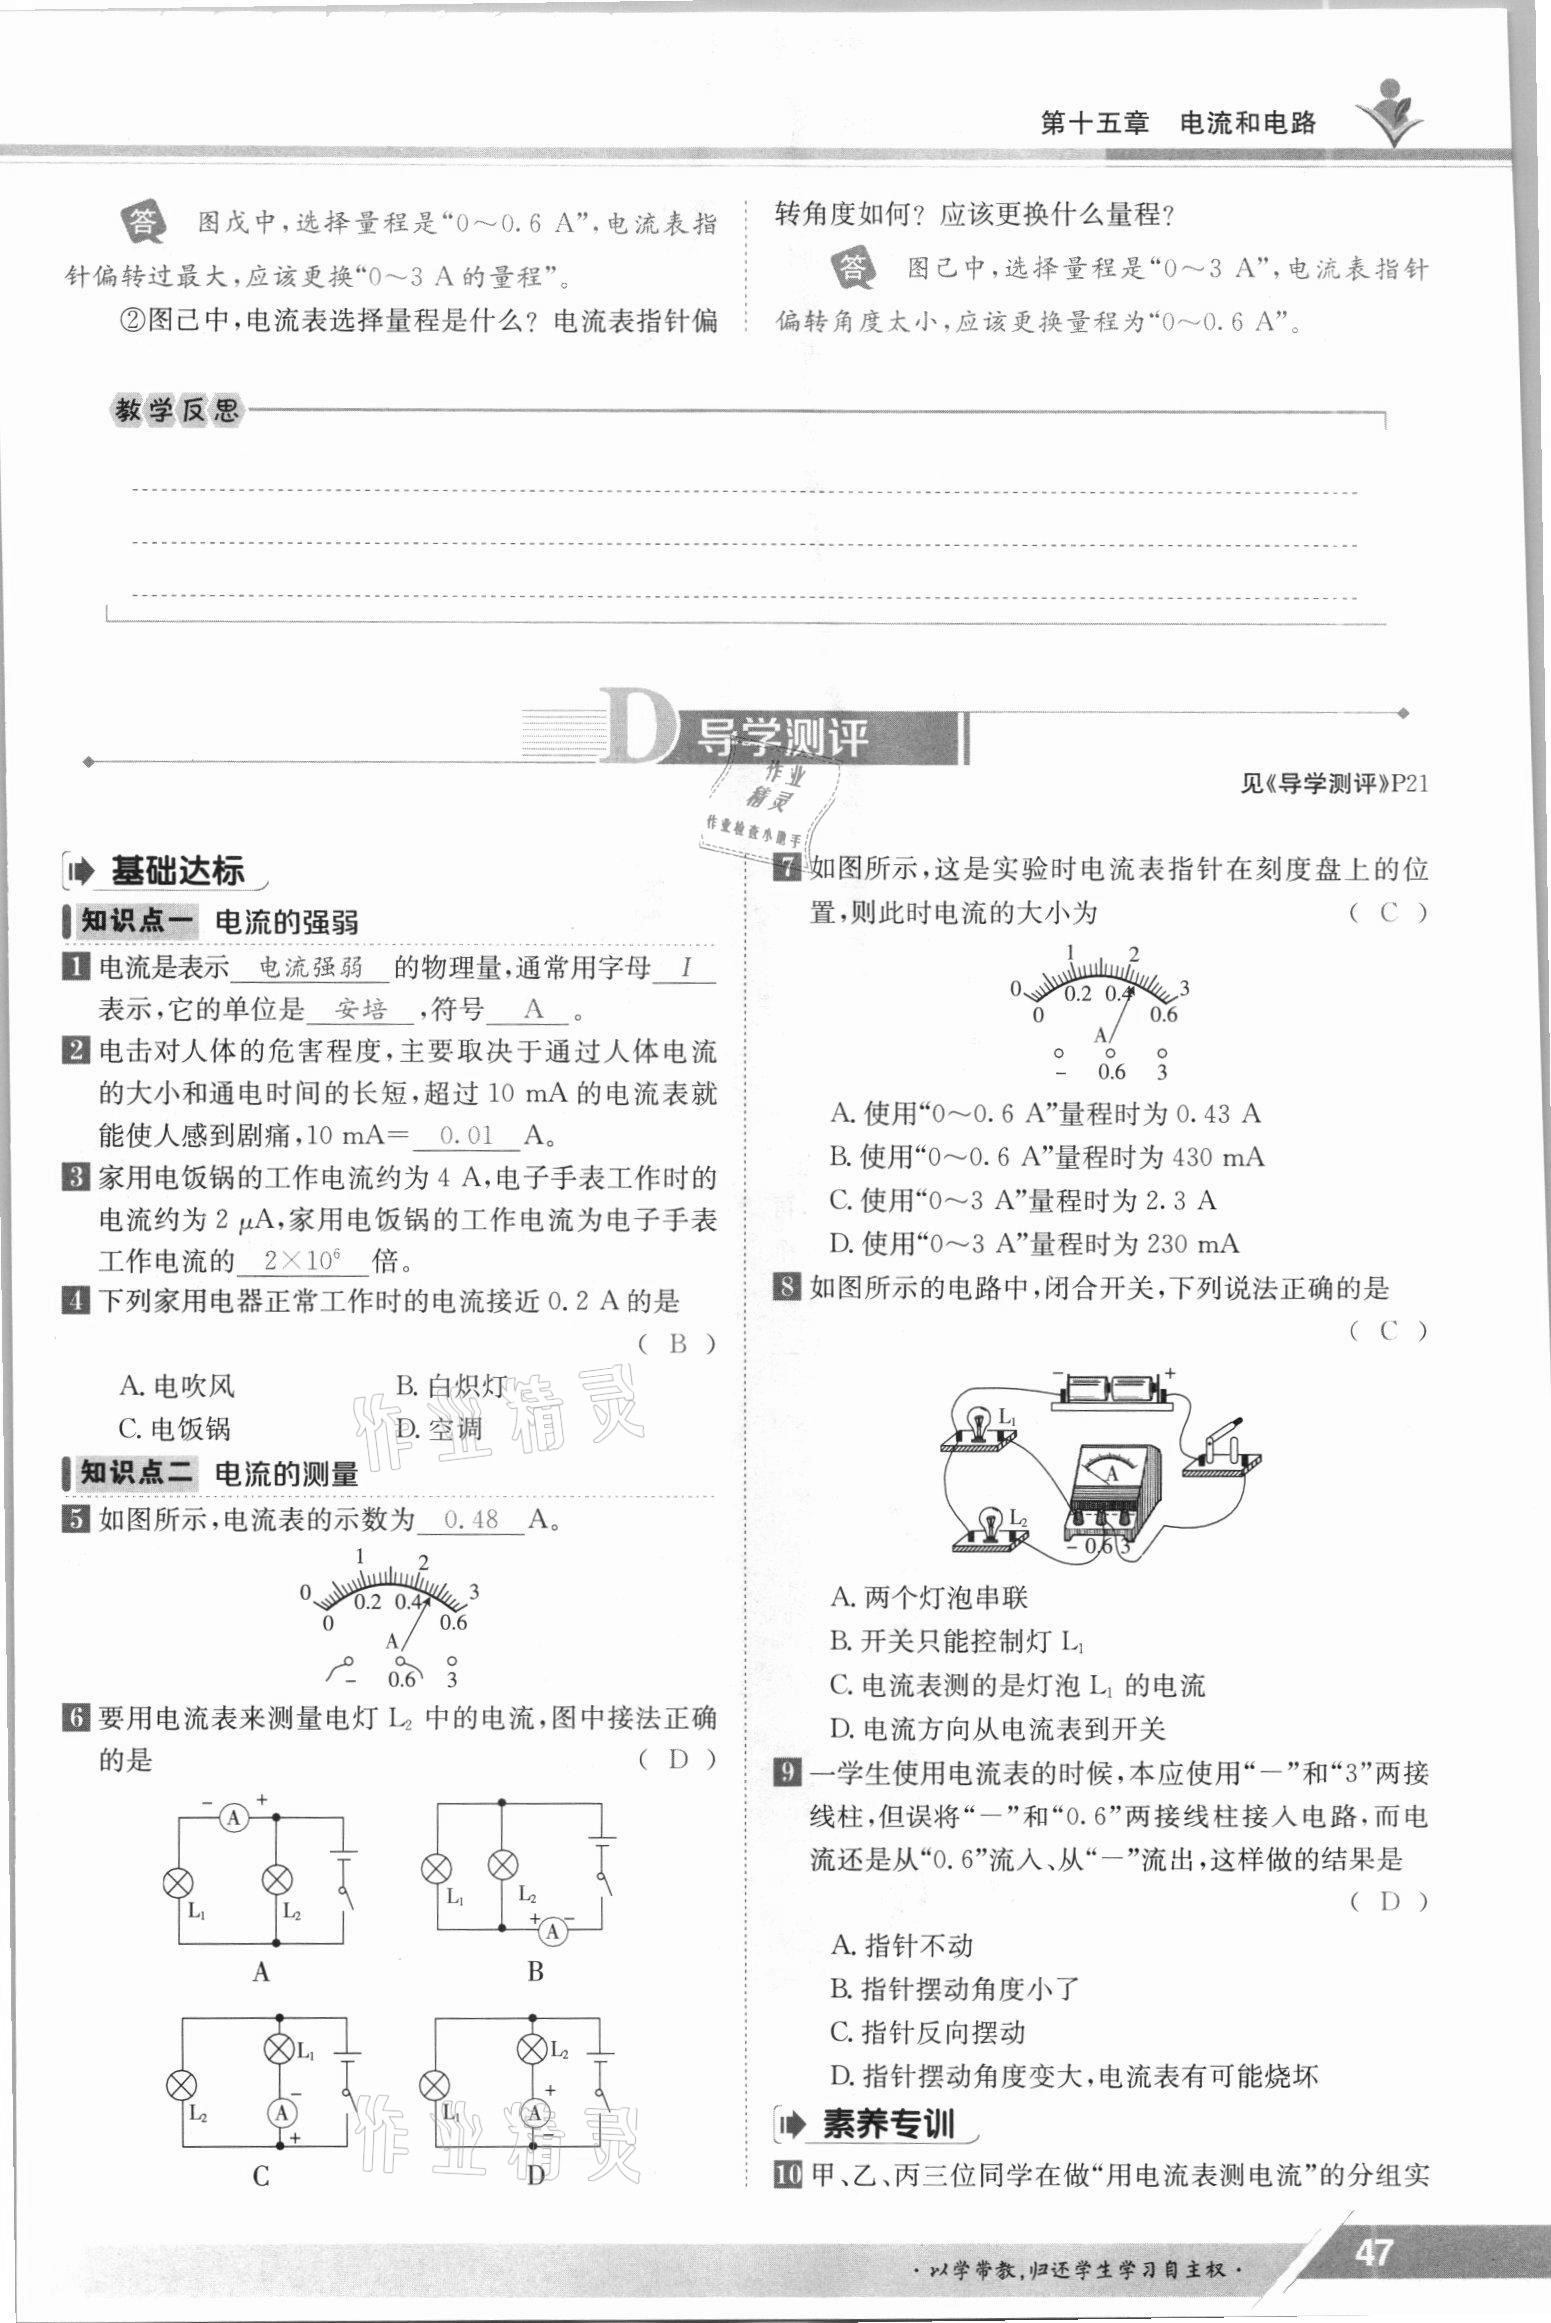 第十五章 电流和电路
答 图戊中,选择量程是“0～0.6 A”,电流表指
针偏转过最大,应该更换“0～3 A的量程”。
②图己中,电流表选择量程是什么? 电流表指针偏
转角度如何? 应该更换什么量程?
答 图己中,选择量程是“0～3 A”,电流表指针
偏转角度太小,应该更换量程为“0～0.6 A”。
教学反思
D 导学测评
见《导学测评》P21
作业
精灵
作业检查小助手
基础达标
知识点一 电流的强弱
1 电流是表示 电流强弱 的物理量,通常用字母 I
表示,它的单位是 安培 ,符号 A 。
2 电击对人体的危害程度,主要取决于通过人体电流
的大小和通电时间的长短,超过10 mA的电流表就
能使人感到剧痛,10 mA= 0.01 A。
3 家用电饭锅的工作电流约为4 A,电子手表工作时的
电流约为2 μA,家用电饭锅的工作电流为电子手表
工作电流的 2×10⁶ 倍。
4 下列家用电器正常工作时的电流接近0.2 A的是
( B )
A. 电吹风 B. 白炽灯
C. 电饭锅 D. 空调
作业精灵
知识点二 电流的测量
5 如图所示,电流表的示数为 0.48 A。
0 1 2 3
0 0.2 0.4 0.6
A
- 0.6 3
6 要用电流表来测量电灯L₂中的电流,图中接法正确
的是 ( D )
- A +
L₁ L₂
A
L₁ L₂
+ A -
B
L₁
L₂
- A +
C
L₂
L₁
+ A -
D
作业精灵
7 如图所示,这是实验时电流表指针在刻度盘上的位
置,则此时电流的大小为 ( C )
0 1 2 3
0 0.2 0.4 0.6
A
- 0.6 3
A. 使用“0～0.6 A”量程时为0.43 A
B. 使用“0～0.6 A”量程时为430 mA
C. 使用“0～3 A”量程时为2.3 A
D. 使用“0～3 A”量程时为230 mA
8 如图所示的电路中,闭合开关,下列说法正确的是
( C )
- +
L₁
A
L₂
- 0.6 3
A. 两个灯泡串联
B. 开关只能控制灯L₁
C. 电流表测的是灯泡L₁的电流
D. 电流方向从电流表到开关
9 一学生使用电流表的时候,本应使用“－”和“3”两接
线柱,但误将“－”和“0.6”两接线柱接入电路,而电
流还是从“0.6”流入、从“－”流出,这样做的结果是
( D )
A. 指针不动
B. 指针摆动角度小了
C. 指针反向摆动
D. 指针摆动角度变大,电流表有可能烧坏
素养专训
10 甲、乙、丙三位同学在做“用电流表测电流”的分组实
·以学带教,归还学生学习自主权·
47